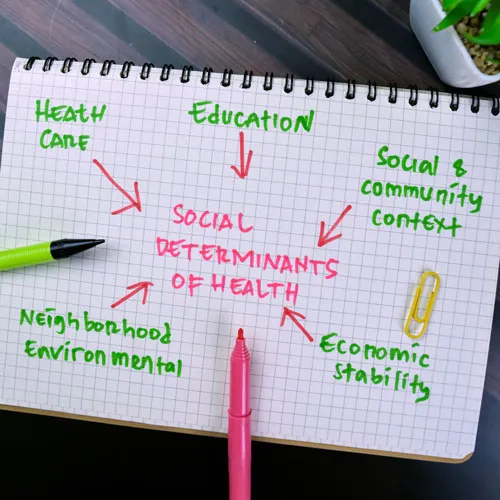 HEATH
CARE
EDUCATION
Social &
community
context
SOCIAL
DETERMINANTS
OF HEALTH
Neighborhood
Environmental
Economic
stability